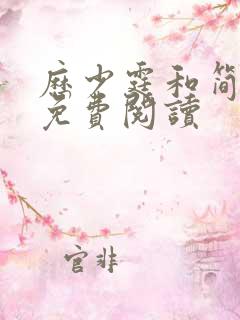 历少霆和简
免費閱讀
官非